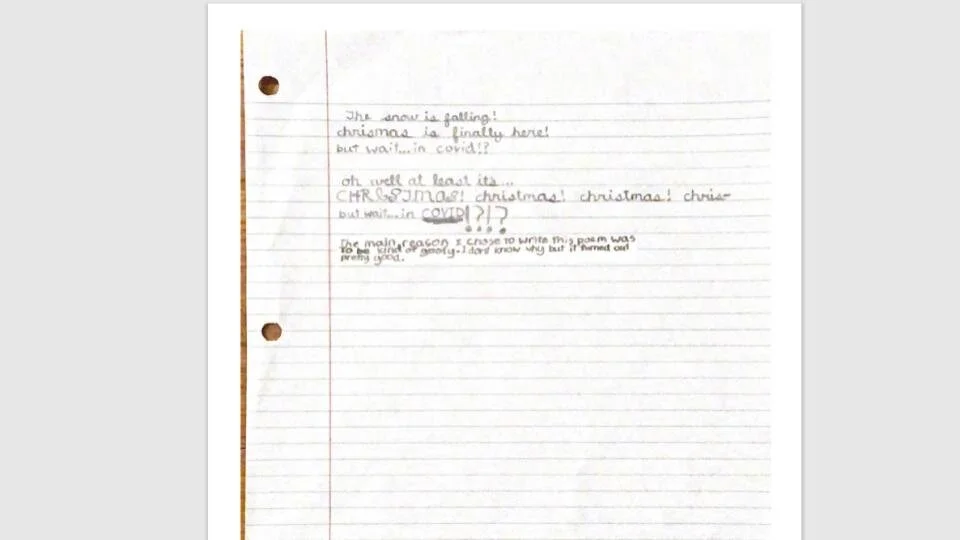 The snow is falling!
chrismas is finally here!
but wait...in covid!?
oh well at least its...
CHRISTMAS! christmas! christmas! chris-
but wait...in COVID!?!?
The main reason I chose to write this poem was
to be kind of goofy. I dont know why but it turned out
pretty good.